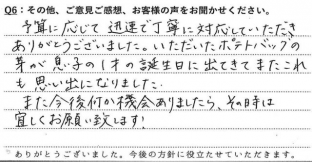 Q6：その他、ご意見ご感想、お客様の声をお聞かせください。
予算に応じて迅速で丁寧に対応していただき
ありがとうございました。いただいたポテトバックの
芽が息子の1才の誕生日に出てきてまたこれ
も思い出になりました。
また今後何か機会ありましたら、その時は
宜しくお願い致します!
ありがとうございました。今後の方針に役立たせていただきます。